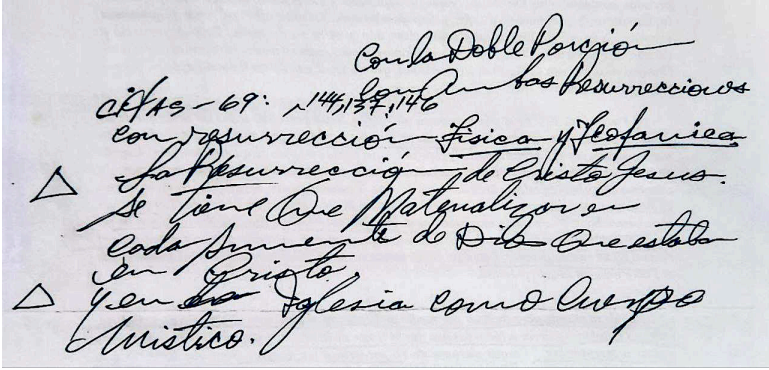 Con la Doble Porción
Con Ambas Resurrecciones
citas-69: 144,137,146
con resurrección Física y Teofanica
La Resurrección de Cristo Jesus.
se tiene Que Materializar en
cada simiente de Dios Que estaba
en Cristo.
y en la Iglesia como Cuerpo
Mistico.